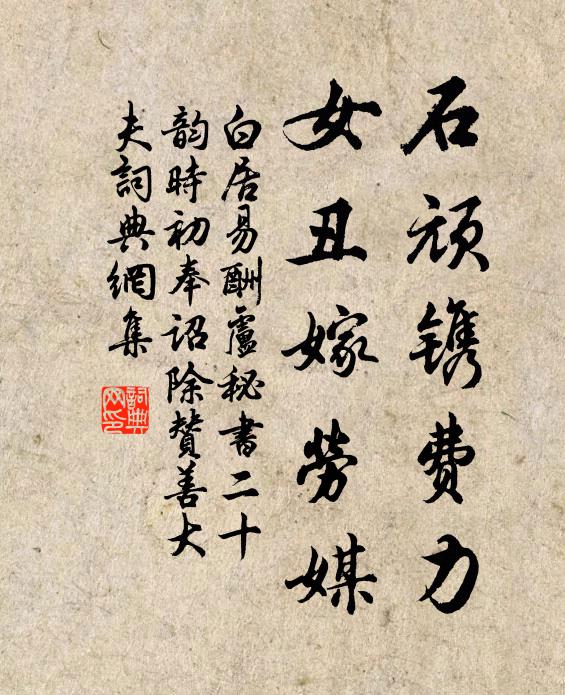 石顽镌费力
女丑嫁勞媒
白居易酬盧秘書二十
韵時初奉詔除贊善大
夫詞典網集
詞典
网印